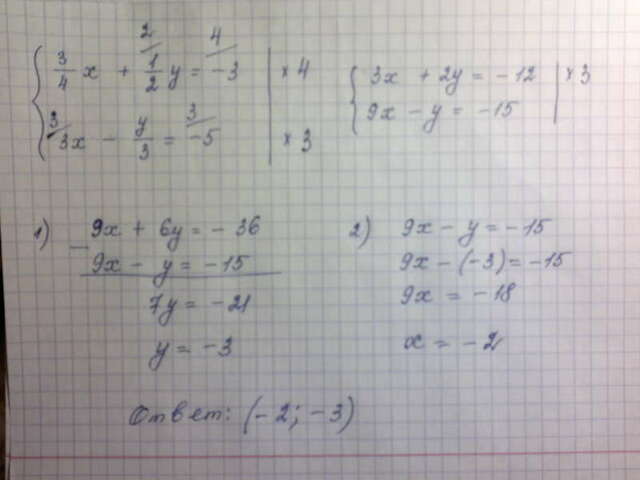 3/4 x + 1/2 y = -3 | × 4
3x - y/3 = -5 | × 3
3x + 2y = -12 | × 3
9x - y = -15
1) 9x + 6y = -36
- 9x - y = -15
7y = -21
y = -3
2) 9x - y = -15
9x - (-3) = -15
9x = -18
x = -2
Ответ: (-2; -3)